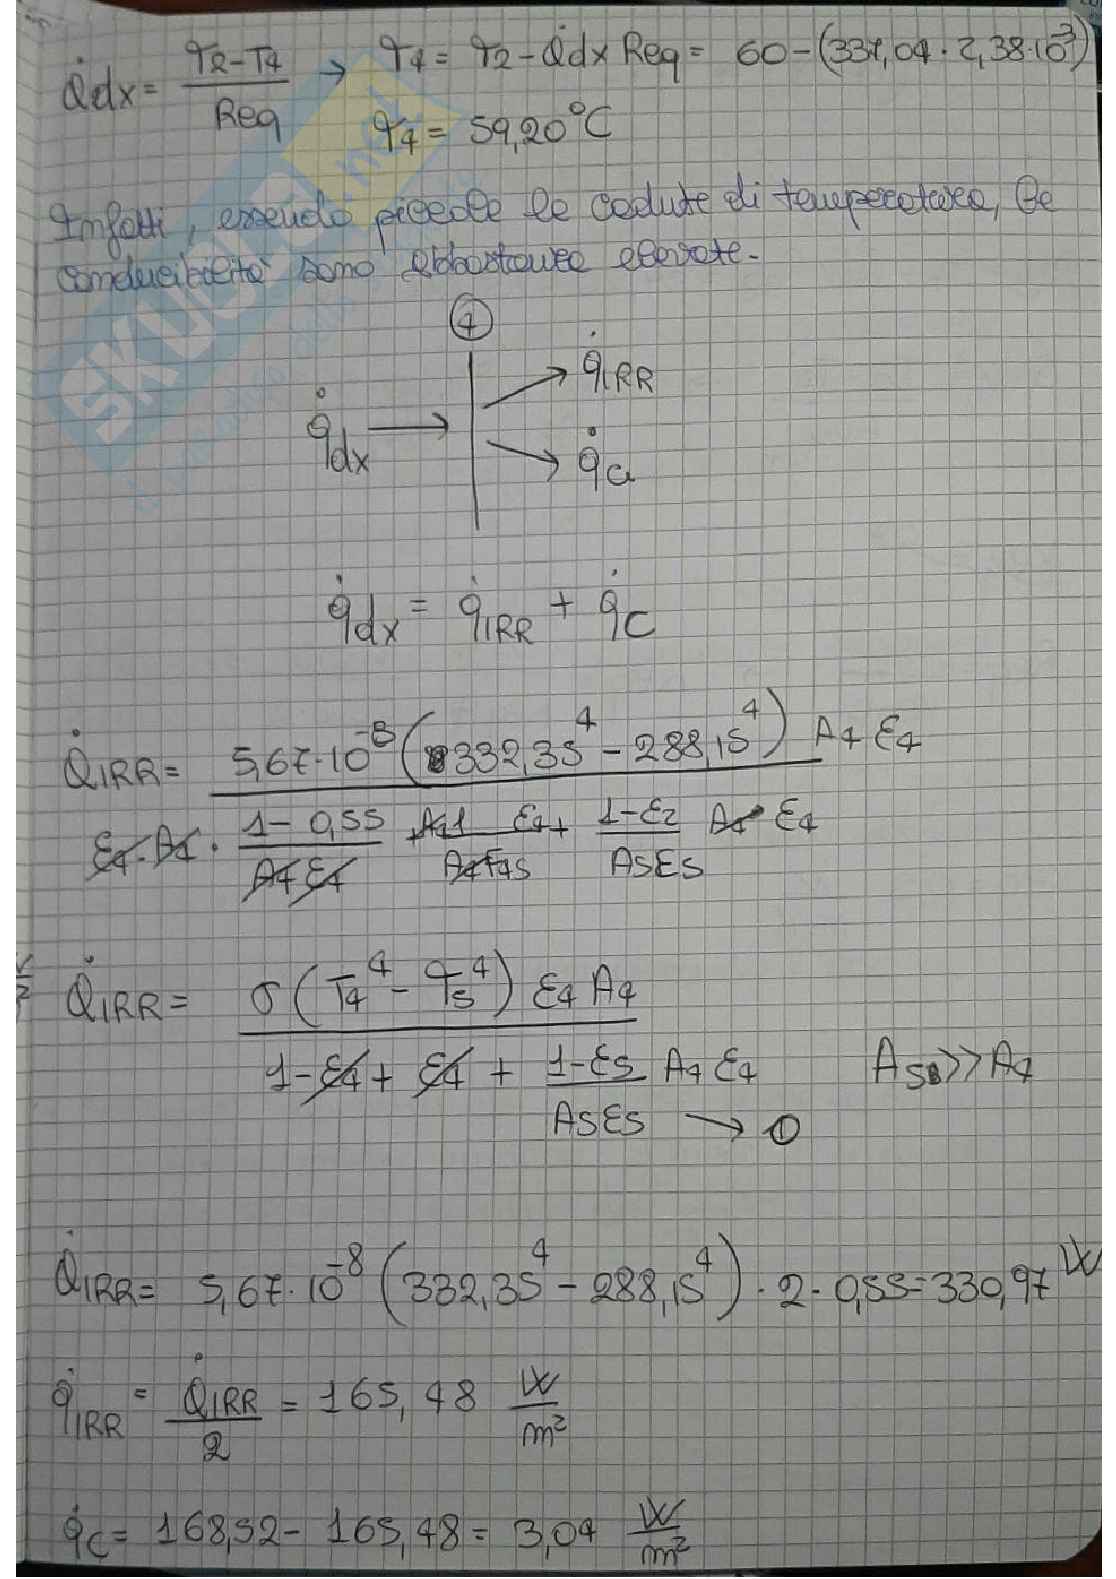 Q̇dx = (T2-T4)/Req → T4 = T2 - Q̇dx Req = 60 - (337,04 · 2,38·10⁻³)
T4 = 59,20°C
Infatti, essendo piccole le cadute di temperatura, le
conducibilità sono abbastanza elevate.
4
q̇dx → q̇IRR
q̇c
q̇dx = q̇IRR + q̇c
Q̇IRR = 5,67·10⁻⁸ (332,35⁴ - 288,15⁴) A4 ε4
ε4·A4 · (1-0,55)/(A4 ε4) + A4 1 ε4/(A4 F4s) + (1-ε2)/(Asεs) A4 ε4
Q̇IRR = σ (T4⁴ - Ts⁴) ε4 A4
1-ε4 + ε4 + (1-εs)/(Asεs) A4 ε4 → 0 As>>A4
Q̇IRR = 5,67·10⁻⁸ (332,35⁴ - 288,15⁴) · 2 · 0,55 = 330,97 W
q̇IRR = Q̇IRR/2 = 165,48 W/m²
q̇c = 168,52 - 165,48 = 3,04 W/m²
SKUOLA.net